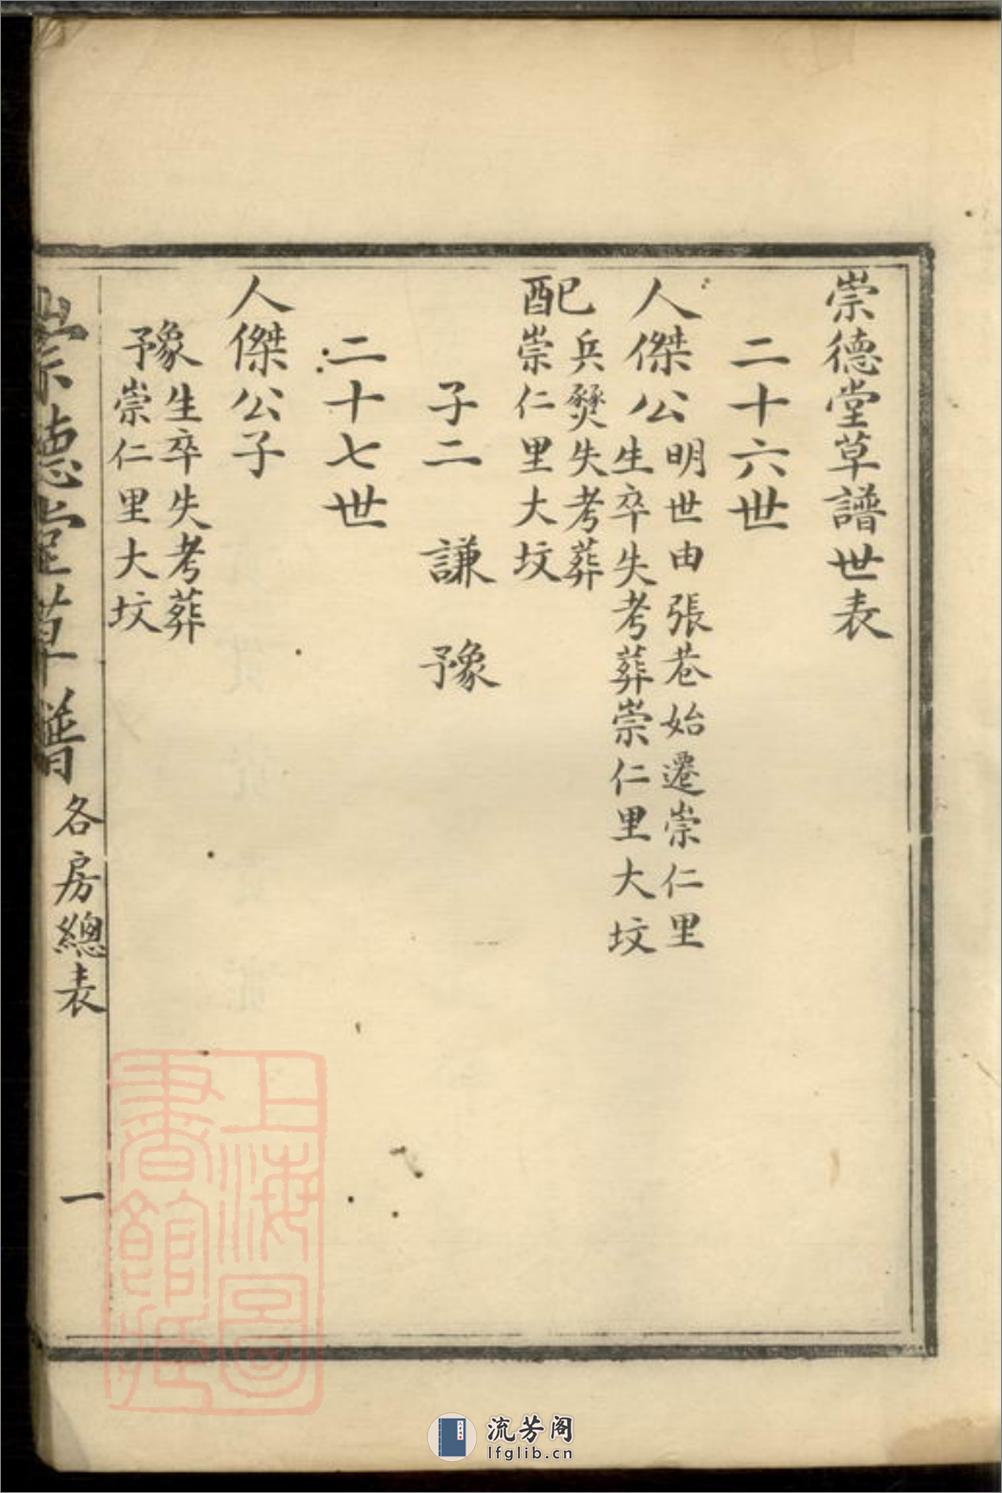 崇德堂草譜世表
二十六世
人傑公
明世由張巷始遷崇仁里
生卒失考葬崇仁里大坟
配
兵燹失考葬
崇仁里大坟
子二 謙 豫
二十七世
人傑公子
豫
生卒失考葬
崇仁里大坟
崇德堂草譜 各房總表 一
上海圖書館藏
流芳阁
lfglib.cn